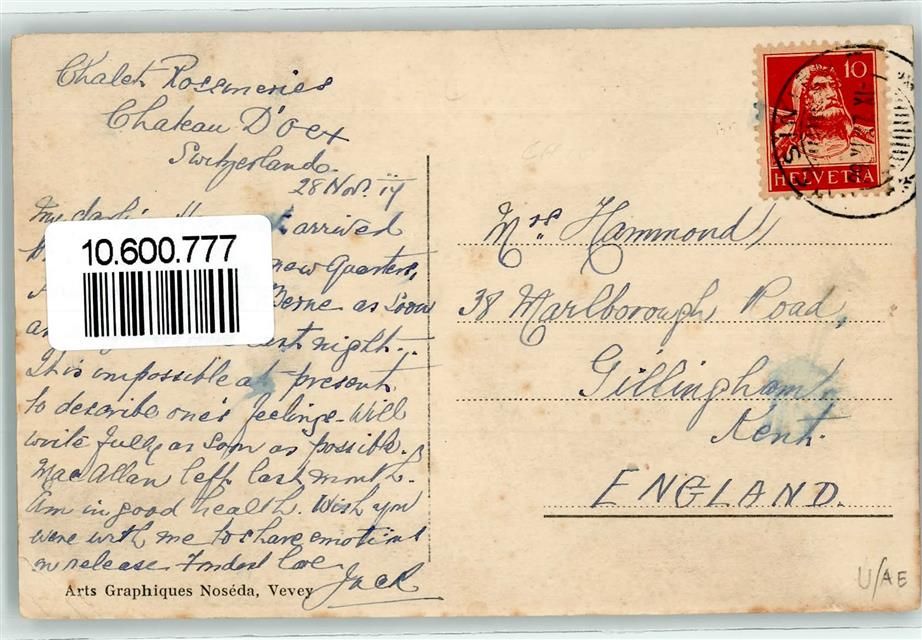 Chalet Rosemeries
Chateau D'oex
Switzerland.
28 Nov. 17
My arrived
new Quarters,
Berne as soon
last night.
It is impossible at present
to describe one's feelings. Will
write fully as soon as possible.
MacAllan left last month.
Am in good health. Wish you
were with me to share emotions
on release. Fondest love
Jack
Arts Graphiques Noséda, Vevey
10.600.777
10
HELVETIA
Mrs Hammond
38 Marlborough Road,
Gillingham
Kent.
ENGLAND.
U/AE